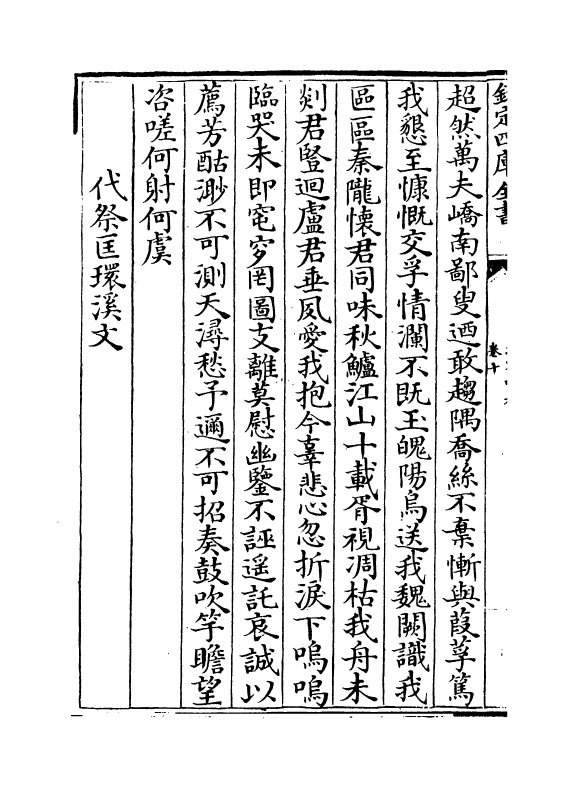 欽定四庫全書
卷十
超然萬夫嶠南鄙叟迺敢趨隅喬絲不棄慚與葭莩篤
我懇至慷慨交孚情瀾不既玉魄陽烏送我魏闕識我
區區秦隴懷君同味秋鱸江山十載胥視凋枯我舟未
剡君豎迴盧君垂夙愛我抱今辜悲心忽折淚下嗚嗚
臨哭未即窀穸罔圖支離莫慰幽鑒不誣遥託哀誠以
薦芳酤渺不可測天潯愁予邇不可招奏鼓吹竽瞻望
咨嗟何射何虞
代祭匡環溪文